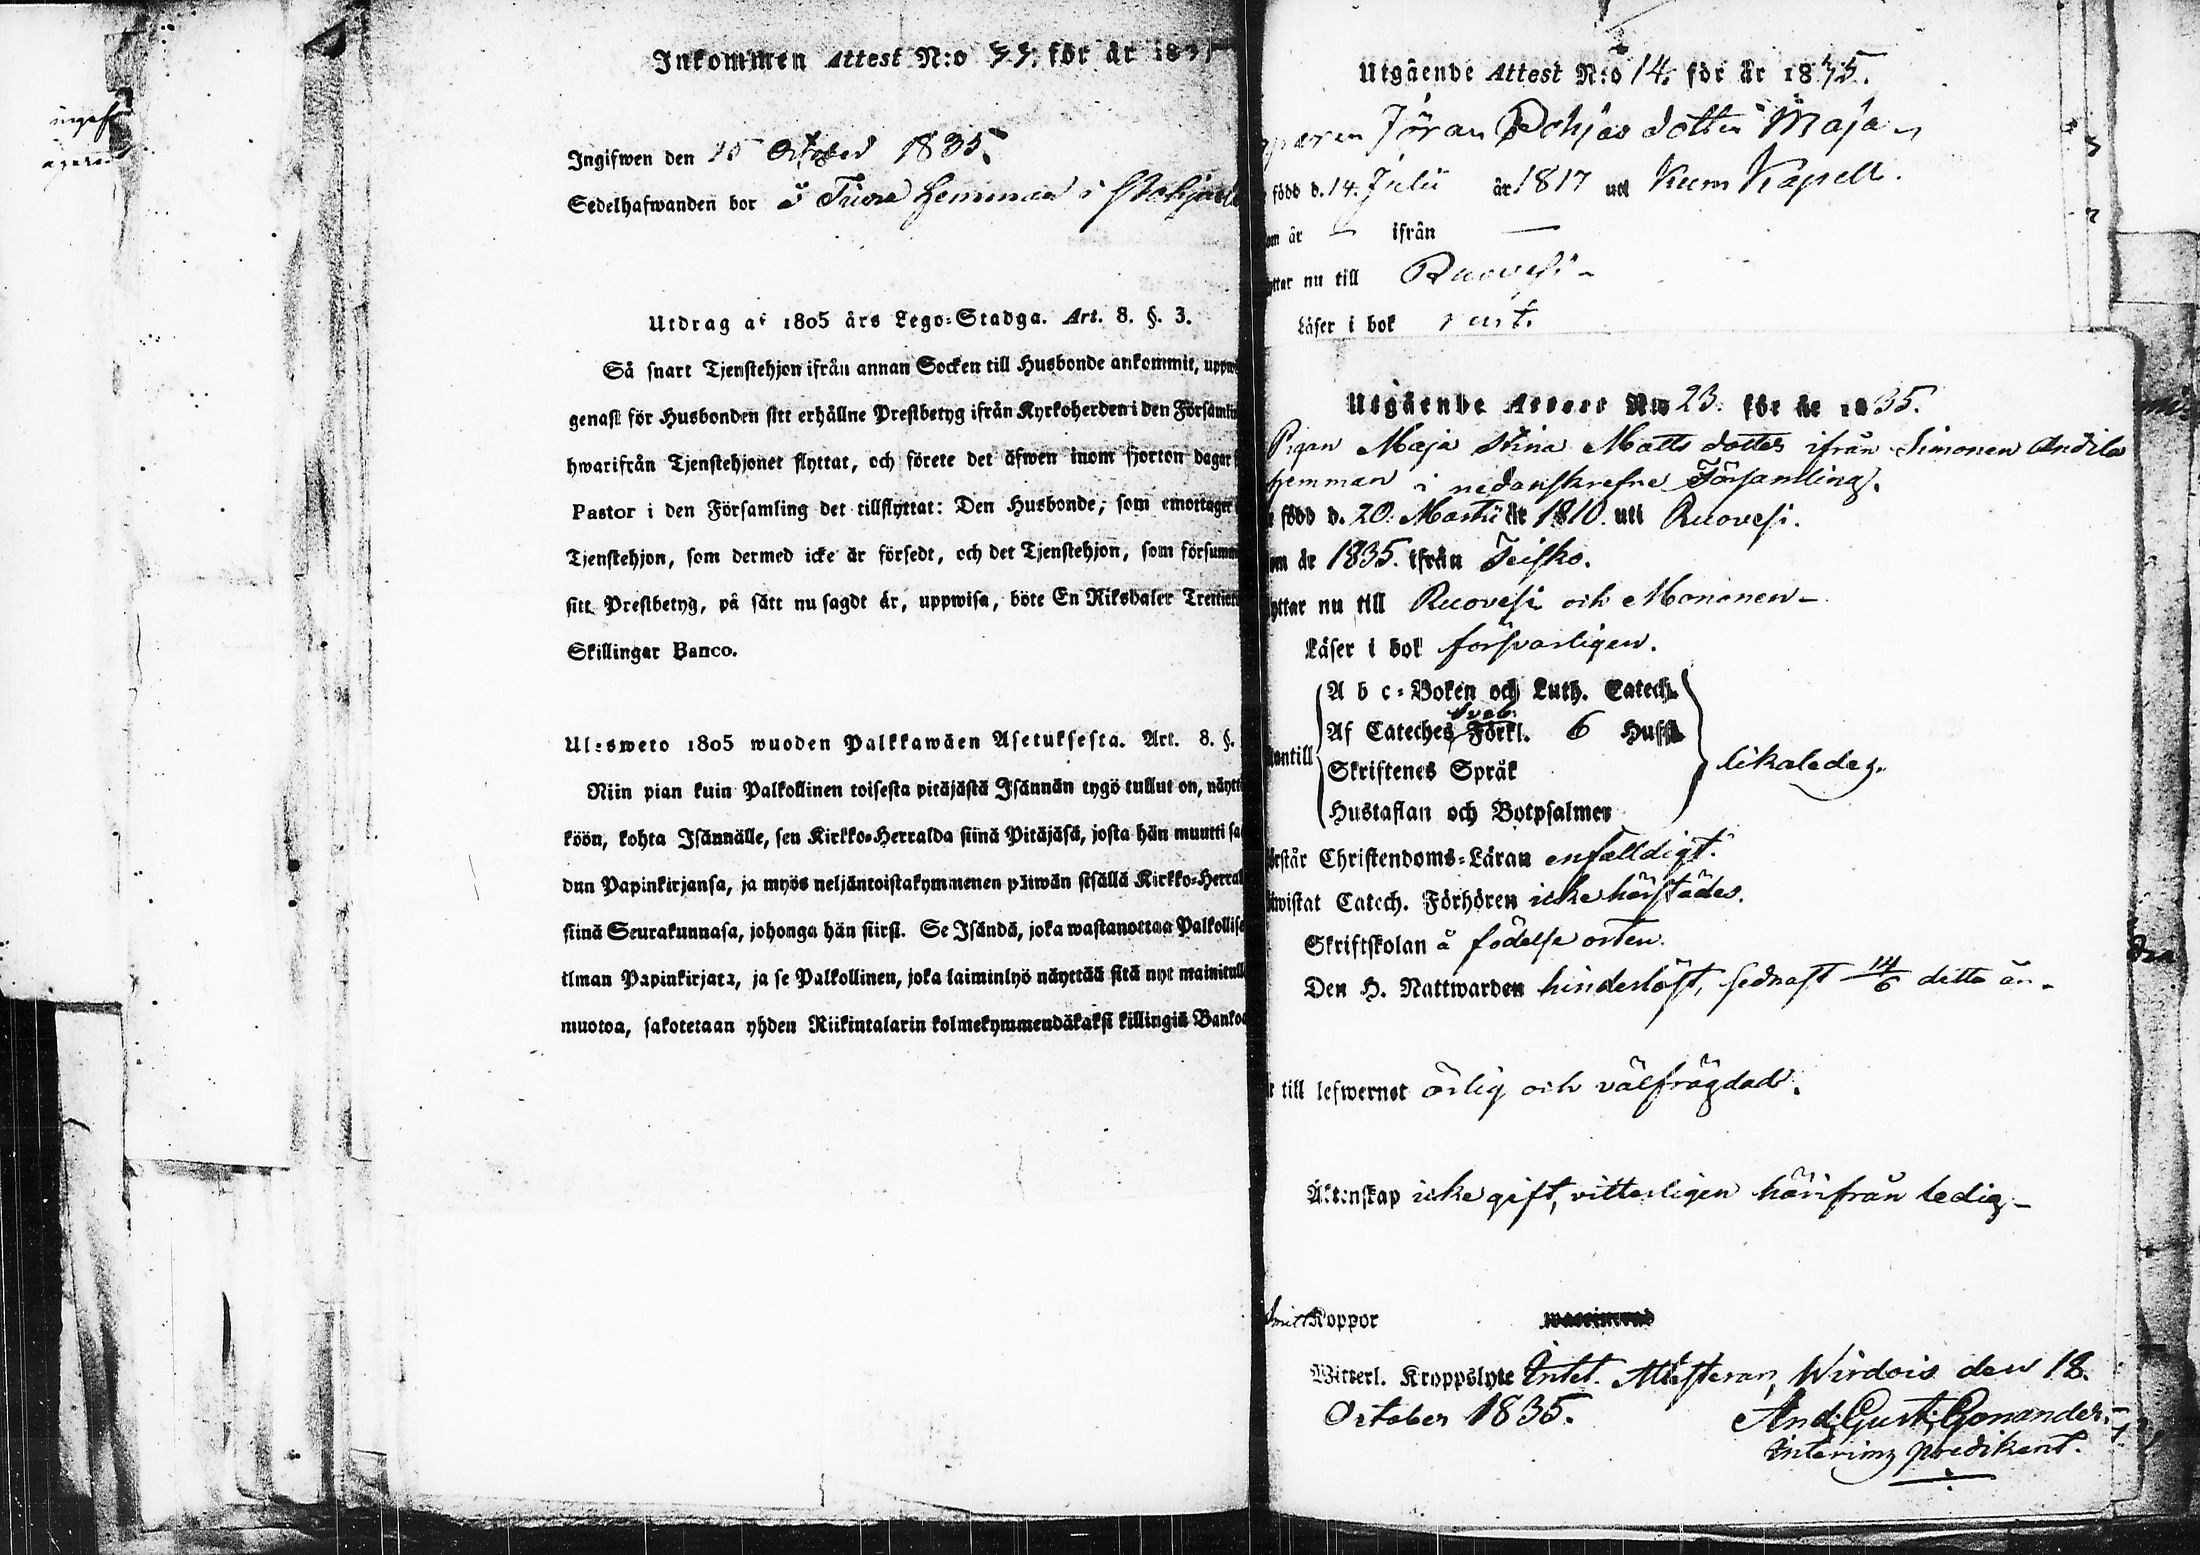 Inkommen Attest N:o för år 183
Ingifwen den 15 October 1835.
Sedelhafwanden bor å hemman i
Utdrag af 1805 års Lego-Stadga. Art. 8. §. 3.
Så snart Tjenstehjon ifrån annan Socken till Husbonde ankommit, uppw
genast för Husbonden sitt erhållne Prestbetyg ifrån Kyrkoherden i den Församlin
hwarifrån Tjenstehjonet flyttat, och förete det äfwen inom fjorton dagar
Pastor i den Församling det tillflyttat: Den Husbonde, som emottager
Tjenstehjon, som dermed icke är försedt, och det Tjenstehjon, som försumm
sitt Prestbetyg, på sätt nu sagdt är, uppwisa, böte En Riksdaler Trettio
Skillingar Banco.
Ulosweto 1805 wuoden Palkkawäen Asetuksesta. Art. 8. §.
Niin pian kuin Palkollinen toisesta pitäjästä Isännän tygö tullut on, näytt
köön, kohta Isännälle, sen Kirkko-Herralda siinä Pitäjäsä, josta hän muutti sa
dun Papinkirjansa, ja myös neljäntoistakymmenen päiwän sisällä Kirkko-Herral
siinä Seurakunnasa, johonga hän siirst. Se Isändä, joka wastanottaa Palkollise
ilman Papinkirjata, ja se Palkollinen, joka laiminlyö näyttää sitä nyt mainitull
muotoa, sakotetaan yhden Riikintalarin kolmekymmendäkaksi killingiä Banko
Utgående Attest N:o 14. för år 1835.
Jöran Pohjas dotter Maja
född d. 14. Julii år 1817 uti Kuru Kapell.
om år — ifrån —
yttar nu till Ruovesi –
Läser i bok
Utgående Attest N:o 23. för år 1835.
Pigan Maja Stina Matts dotter ifrån Simonen Andila
hemman i nedanskrefne Församling.
född d. 20. Martii år 1810. uti Ruovesi.
om år 1835. ifrån Teisko.
yttar nu till Ruovesi och Mononen –
Läser i bok försvarligen.
A b c-Boken och Luth. Catech.
Sveb.
Af Cateches Förkl. 6 Hufst.
antill
Skriftenes Språk
likaledes.
Hustaflan och Botpsalmer
örstår Christendoms-Läran enfalldigt.
iwistat Catech. Förhören icke härstädes.
Skriftskolan å födelse orten.
Den H. Nattwarden hinderlöst, sednast 14/6 detta år –
till lefwernet ärlig och välfrägdad.
Äktenskap icke gift, vitterligen härifrån ledig –
Koppor
Witterl. Kroppslyte Intet. Attesterar, Wirdois den 18.
October 1835.
And: Gust: Gonander.
Interims predikant.